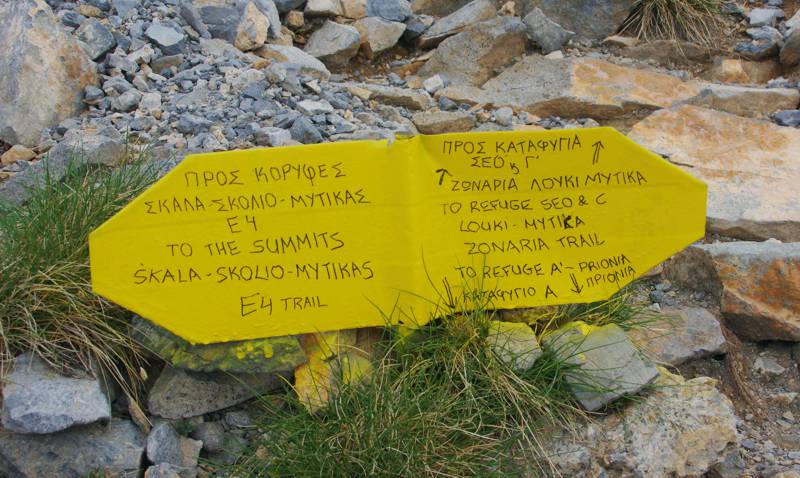 ΠΡΟΣ ΚΟΡΥΦΕΣ
ΣΚΑΛΑ-ΣΚΟΛΙΟ-ΜΥΤΙΚΑΣ
E4
TO THE SUMMITS
SKALA-SKOLIO-MYTIKAS
E4 TRAIL
ΠΡΟΣ ΚΑΤΑΦΥΓΙΑ ↑
ΣΕΟ & Γ'
↑ ΖΩΝΑΡΙΑ ΛΟΥΚΙ ΜΥΤΙΚΑ
TO REFUGE SEO & C
LOUKI - MYTIKA
ZONARIA TRAIL
TO REFUGE A' - PRIONIA
↓ ΚΑΤΑΦΥΓΙΟ Α ↓ ΠΡΙΟΝΙΑ